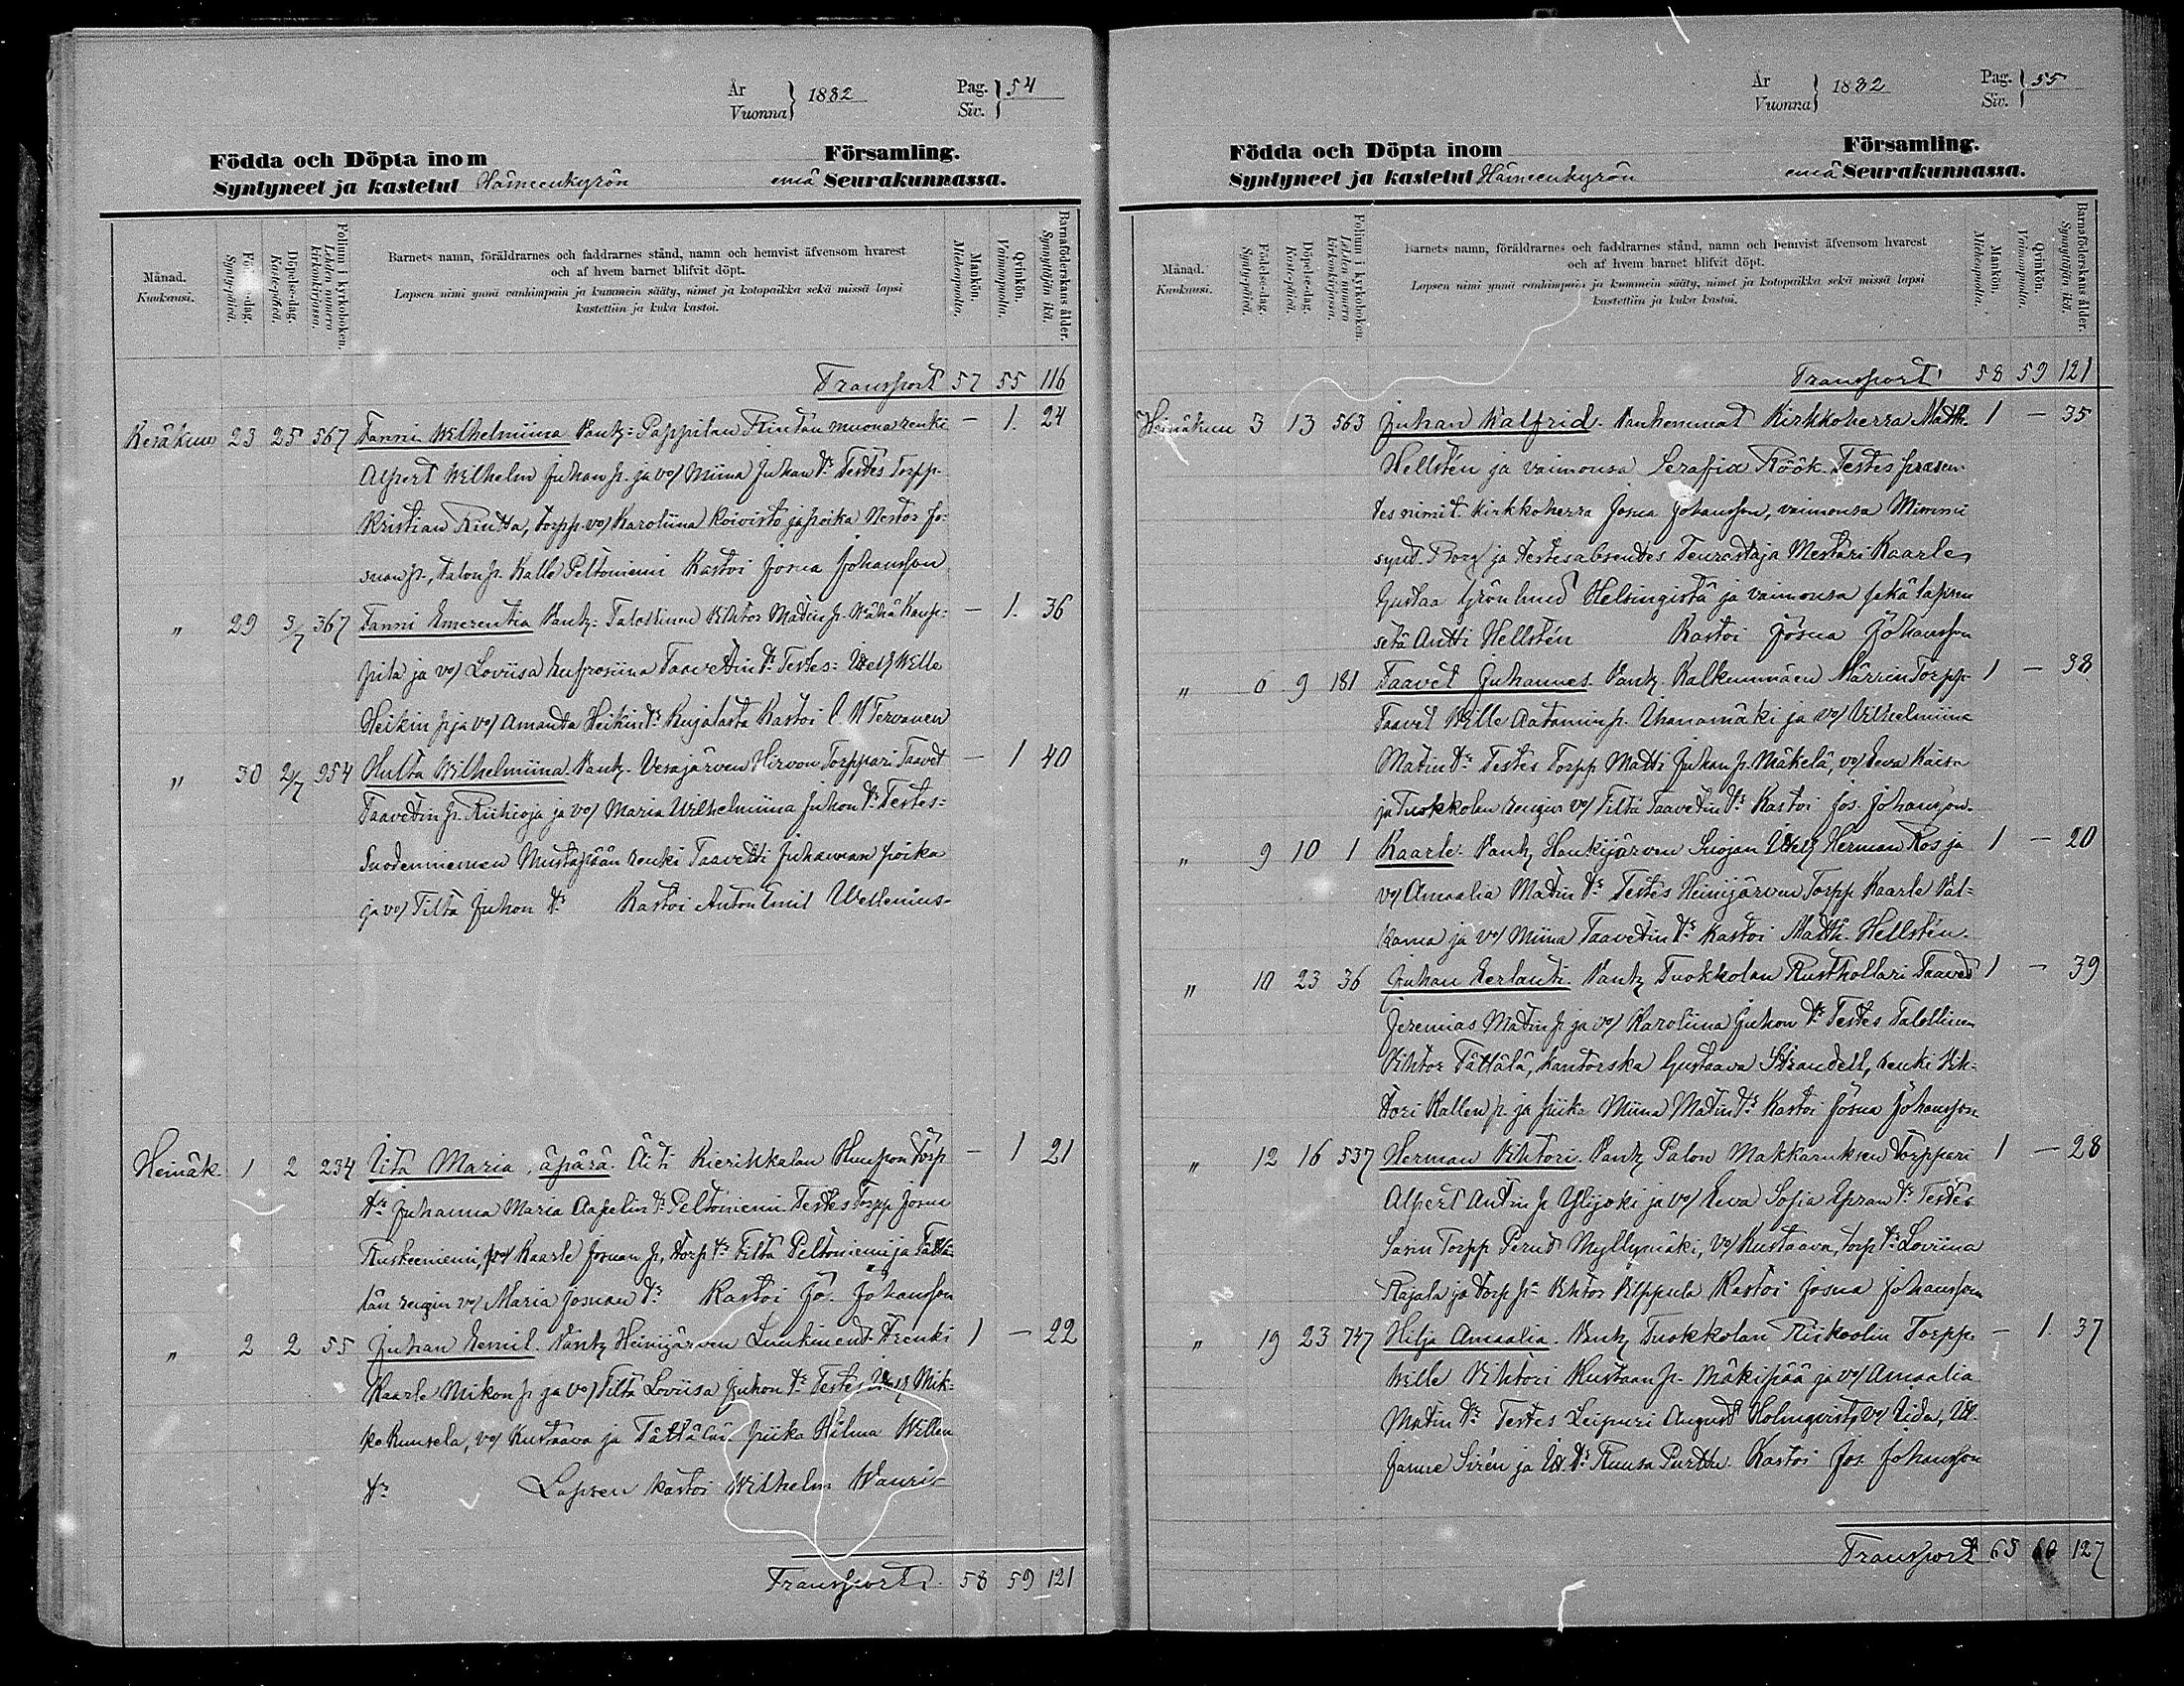 År
Vuonna } 1882
Pag.
Siv. } 54
Födda och Döpta inom Församling.
Syntyneet ja kastetut Hämeenkyrön emä Seurakunnassa.
Månad.
Kuukausi.
Födelse-dag.
Syntypäivä.
Döpelse-dag.
Kastepäivä.
Folium i kyrkoboken.
Lehden numero kirkonkirjassa.
Barnets namn, föräldrarnes och faddrarnes stånd, namn och hemvist äfvensom hvarest
och af hvem barnet blifvit döpt.
Lapsen nimi ynnä vanhimpain ja kummein sääty, nimet ja kotopaikka sekä missä lapsi
kastettiin ja kuka kastoi.
Mankön.
Miehenpuolia.
Qvinkön.
Vaimonpuolia.
Barnaföderskans ålder.
Synnyttäjän ikä.
Transport 57 55 116
Kesäkuu 23 25 567 Fanni Wilhelmiina Vanh: Pappilan Rintan muona renki — 1. 24
Alpert Wilhelm Juhan p. ja vo/ Miina Juhan tr Testes Torpp.
Kristian Rintta, torpp. vo/ Karoliina Koivisto ja poika Nestor Jo-
suan p., talon p. Kalle Peltoniemi Kastoi Josua Johansson
„ 29 3/7 367 Fanni Emerentia Vanh: Talollinen Vihtor Matin p. Vähä Kaup-
— 1. 36
pila ja vo/ Loviisa Eufrosiina Taavetin tr Testes: Itsell Wille
Heikin p. ja vo/ Amanda Heikin tr Kujalasta Kastoi C. N Tervanen
„ 30 2/7 954 Hulta Wilhelmiina. Vanh. Vesajärven Hirvon Torppari Taavet — 1 40
Taavetin p. Riihioja ja vo/ Maria Wilhelmiina Juhon tr Testes:
Suodenniemen Mustapään renki Taavetti Juhanan poika
ja vo/ Tilta Juhon tr Kastoi Anton Emil Wellenius
Heinäk. 1 2 234 Iita Maria, äpärä. Äiti Kierikkalan torp — 1 21
tr Juhanna Maria Aapelin tr Peltoniemi Testes Torpp Josua
Ruskeeniemi, Kaarle Josuan p., torp tr Tilta Peltoniemi ja Tättä-
län rengin vo/ Maria Josuan tr Kastoi Jo. Johansson
„ 2 2 55 Juhan Eemil. Vanh Heinijärven renki 1 — 22
Kaarle Mikon p. ja vo/ Tilta Loviisa Juhon tr Testes Itsell Mik-
ko Kuusela, vo/ Kustaava ja Tättälän piika Hilma Willen
tr Lapsen kastoi Wilhelm Wauri
Transport 58 59 121
År
Vuonna } 1882
Pag.
Siv. } 55
Födda och Döpta inom Församling.
Syntyneet ja kastetut Hämeenkyrön emä Seurakunnassa.
Månad.
Kuukausi.
Födelse-dag.
Syntypäivä.
Döpelse-dag.
Kastepäivä.
Folium i kyrkoboken.
Lehden numero kirkonkirjassa.
Barnets namn, föräldrarnes och faddrarnes stånd, namn och hemvist äfvensom hvarest
och af hvem barnet blifvit döpt.
Lapsen nimi ynnä vanhimpain ja kummein sääty, nimet ja kotopaikka sekä missä lapsi
kastettiin ja kuka kastoi.
Mankön.
Miehenpuolia.
Qvinkön.
Vaimonpuolia.
Barnaföderskans ålder.
Synnyttäjän ikä.
Transport 58 59 121
Heinäkuu 3 13 563 Juhan Walfrid. Vanhemmat Kirkkoherra Matth. 1 — 35
Hellstén ja vaimonsa Serafia Röök. Testes præsen-
tes nimit. kirkkoherra Josua Johansson, vaimonsa Mimmi
synt. Borg ja testes absentes Teurastaja Mestari Kaarle
Gustaa Grönlund Helsingistä ja vaimonsa sekä lapsen
setä Antti Hellstén Kastoi Josua Johansson
„ 6 9 181 Taavet Juhannes. Vanh. Kalkunmäen Märrin Torpp. 1 — 38
Taavet Wille Aatamin p. Uhanamäki ja vo/ Vilhelmiina
Matin tr Testes Torpp Matti Juhan p. Mäkelä, vo/ Eeva Kaisa
ja Tuokkolan rengin vo/ Tilta Taavetin tr Kastoi Jos. Johansson
„ 9 10 1 Kaarle. Vanh Haukijärven Suojan Itsell Herman Ros ja 1 — 20
vo/ Amaalia Matin tr Testes Heinijärven Torpp Kaarle Val-
kama ja vo/ Miina Taavetin tr Kastoi Matth. Hellstén.
„ 10 23 36 Juhan Eerlanti. Vanh Tuokkolan Rusthollari Taavet 1 — 39
Jeremias Matin p. ja vo/ Karoliina Juhon tr Testes Talollinen
Vihtor Tättälä, kantorska Gustaava Strandell, renki Vih-
tori Kallen p. ja piika Miina Matin tr Kastoi Josua Johansson
„ 12 16 537 Herman Vihtori. Vanh Palon Makkaruksen Torppari 1 — 28
Alpert Antin p. Ylijoki ja vo/ Eeva Sofia Efran tr Testes
Sasin Torpp Pernt Myllymäki, vo/ Kustaava, torp tr Loviina
Rajala ja torp p. Vihtor Vilppula Kastoi Josua Johansson
„ 19 23 747 Hilja Amaalia. Vanh Tuokkolan Torpp. — 1. 37
Wille Vihtori Kustaan p. Mäkipää ja vo/ Amaalia
Matin tr Testes Leipuri August Holmqvist, vo/ Iida, Itl.
Janne Sirén ja Itl. tr Ruusa Purttu. Kastoi Jos. Johansson
Transport 65 60 127